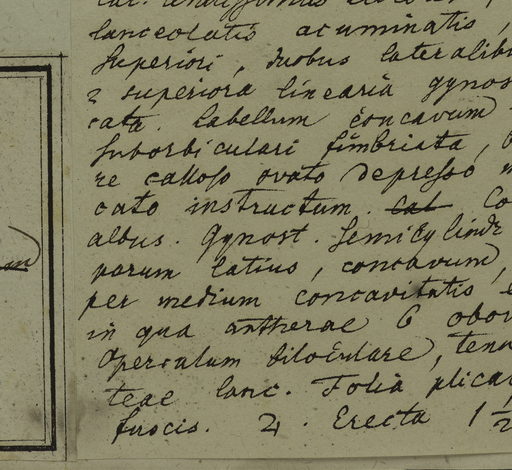 lanceolatis acuminatis,
superiori, duobus lateralib
2 superiora linearia gynos
cata. Labellum concavum
suborbiculari fimbriata,
re calloso ovato depresso
cato instructum. Cal Co
albus. Gynost. semicylindr
parum latius, concavum,
per medium concavitatis
in qua antherae 6 obov
Operculum biloculare, tenu
teae lanc. Folia plica
fuscis. 2. Erecta 1 1/2